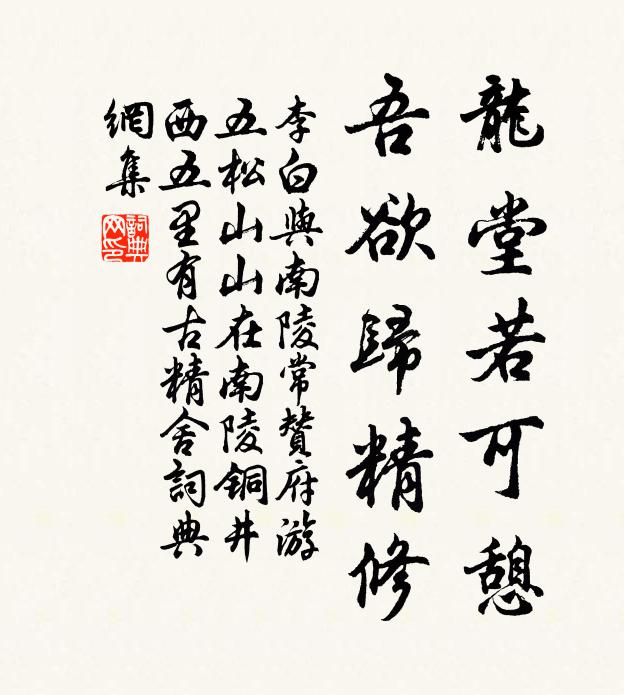 龍堂若可憩
吾欲歸精修
李白與南陵常贊府游
五松山山在南陵銅井
西五里有古精舍詞典
網集
詞典網印